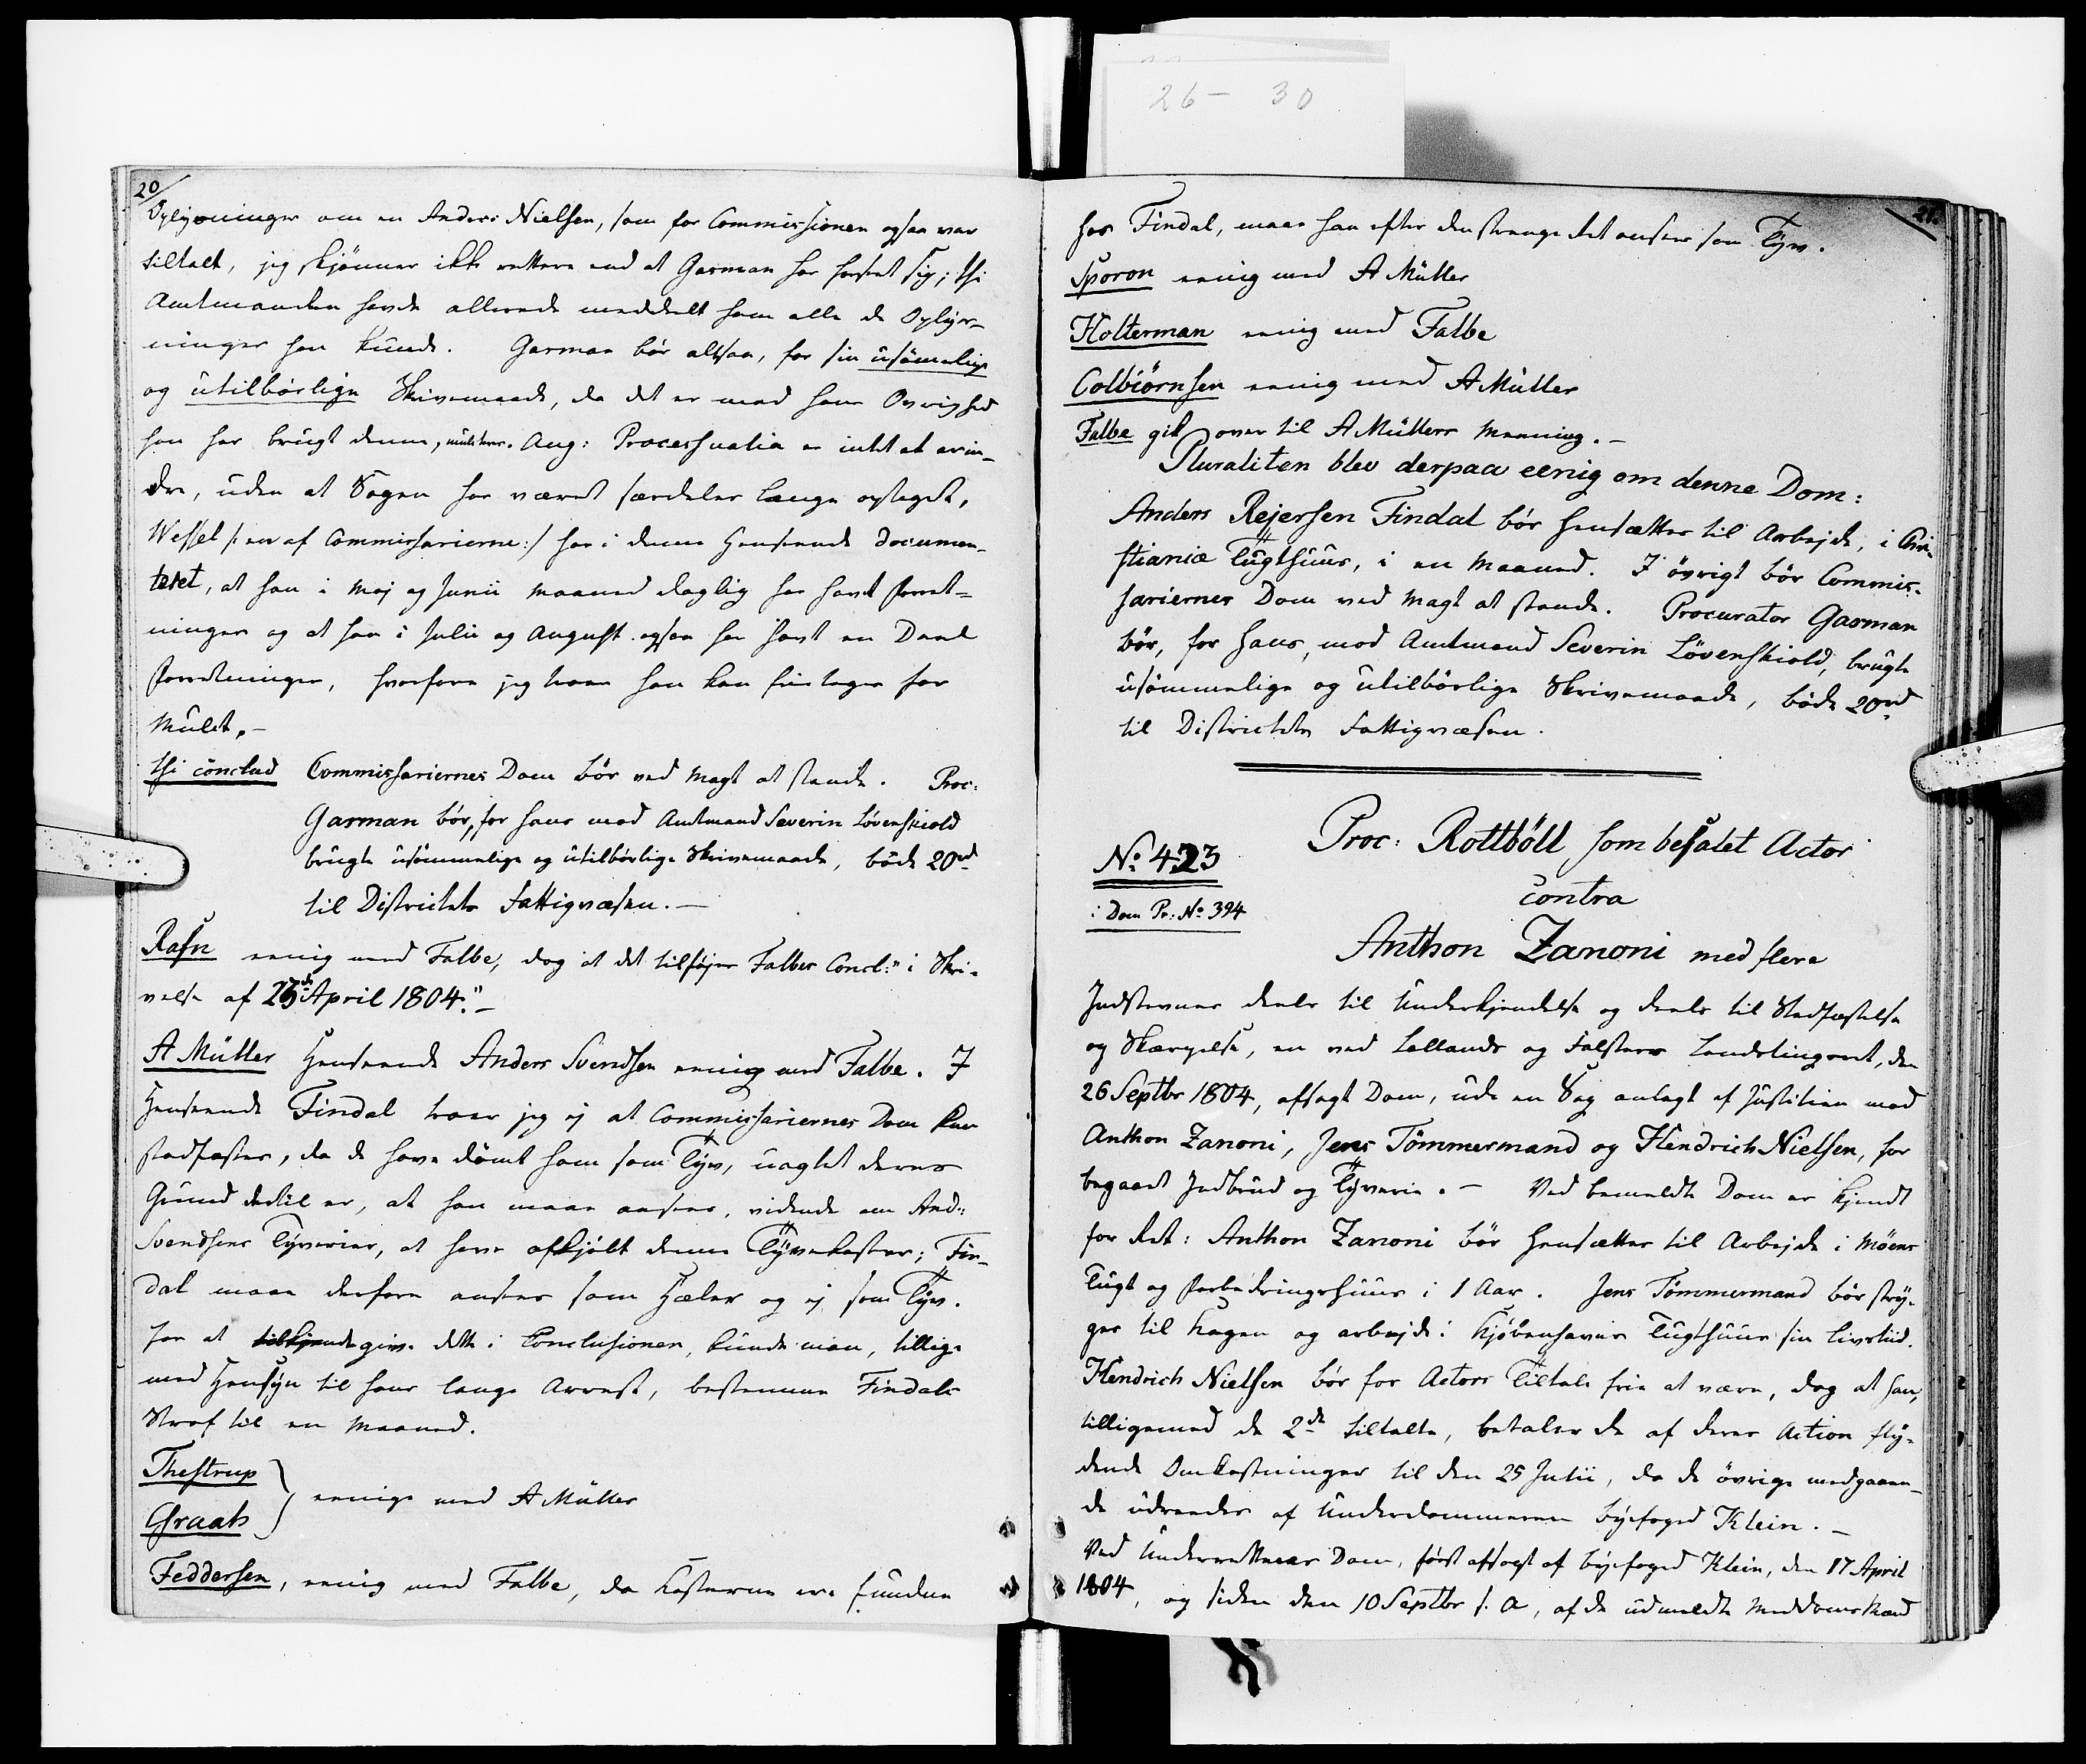 26 - 30
20
Oplysninger om en Anders Nielsen, som for Commissionen ogsaa var
tiltalt, jeg skjønner ikke rettere end at Garman har forseet sig; thi
Amtmanden havde allerede meddeelt ham alle de Oplys-
ninger han kunde. Garman bør altsaa, for sin usømmelige
og utilbørlige Skrivemaade, da det er mod hans Øvrighed
han har brugt denne, mulcteres. Ang: Processualia er intet at erin-
dre, uden at Sagen har været særdeles længe optaget,
Wessel /: en af Commissarierne :/ har i denne Henseende documen-
teret, at han i Maj og Junii Maaned daglig har havt Forret-
ninger og at han i Julii og August ogsaa har havt en Deel
Forretninger, hvorfore jeg troer han kan frietages for
Mulct. -
thi conclud Commissariernes Dom bør ved Magt at stande. Proc:
Garman bør, for hans mod Amtmand Severin Løvenskiold
brugte usømmelige og utilbørlige Skrivemaade, bøde 20 rd
til Districtets Fattigvæsen. -
Rafn eenig med Falbe, dog at det tilføjes Falbes Concl: "i Skri-
velse af 23de April 1804". -
A Müller Henseende Anders Svendsen eenig med Falbe. I
Henseende Findal troer jeg ej at Commissariernes Dom kan
stadfæstes, da de have dömt ham som Tÿv, uagtet deres
Grund dertil er, at han maae ansees, vidende om And:
Svendsens Tÿverier, at have afkjøbt denne Tÿvekoster; Fin-
dal maae derfore ansees som Hæler og ej som Tÿv.
for at give dette i Conclusionen, kunde man, tillige
med Hensÿn til hans lange Arrest, bestemme Findals
Straf til en Maaned.
Thestrup
Graah } eenige med A Müller
Feddersen, eenig med Falbe, da Kosterne ere fundne
21.
hos Findal, maae han efter den strenge Ret ansees som Tÿv.
Sporon eenig med A Müller
Holterman eenig med Falbe
Colbiörnsen eenig med A Müller
Falbe gik over til A Müllers Meening. -
Pluraliten blev derpaa eenig om denne Dom:
Anders Rejersen Findal bör hensættes til Arbejde, i Chri-
stianiæ Tugthuus, i en Maaned. I övrigt bör Commis-
sariernes Dom ved Magt at stande. Procurator Garman
bör, for hans, mod Amtmand Severin Lövenskiold, brugte
usömmelige og utilbörlige Skrivemaade, böde 20 rd
til Districtets Fattigvæsen.
No 423
i Dom Pr: No 394
Proc: Rottböll som befalet Actor
contra
Anthon Zanoni med flere
Indstevner deels til Underkjendelse og deels til Stadfæstelse
og Skærpelse, en ved Lollands og Falsters Landstingsret, den
26 Septbr 1804, afsagt Dom, udi en Sag anlagt af Justitien mod
Anthon Zanoni, Jens Tömmermand og Hendrich Nielsen, for
begaaet Indbrud og Tÿverie. - Ved bemeldte Dom er kjendt
for Ret: Anthon Zanoni bör hensættes til Arbejde i Möens
Tugt og Forbedringshuus i 1 Aar. Jens Tömmermand bör strÿ-
ges til Kagen og arbejde i Kjöbenhavns Tugthuus sin Livstiid.
Hendrich Nielsen bör for Actors Tiltale frie at være, dog at han,
tilligemed de 2de tiltalte, betaler de af deres Action flÿ-
dende Omkostninger til den 25 Julii, da de övrige medgaaen-
de udreedes af Underdommeren bÿefoged Klein. -
Ved Underretternes Dom, först afsagt af bÿefoged Klein, den 17 April
1804, og siden den 10 Septbr s. A, af de udmeldte Meddomsmænd